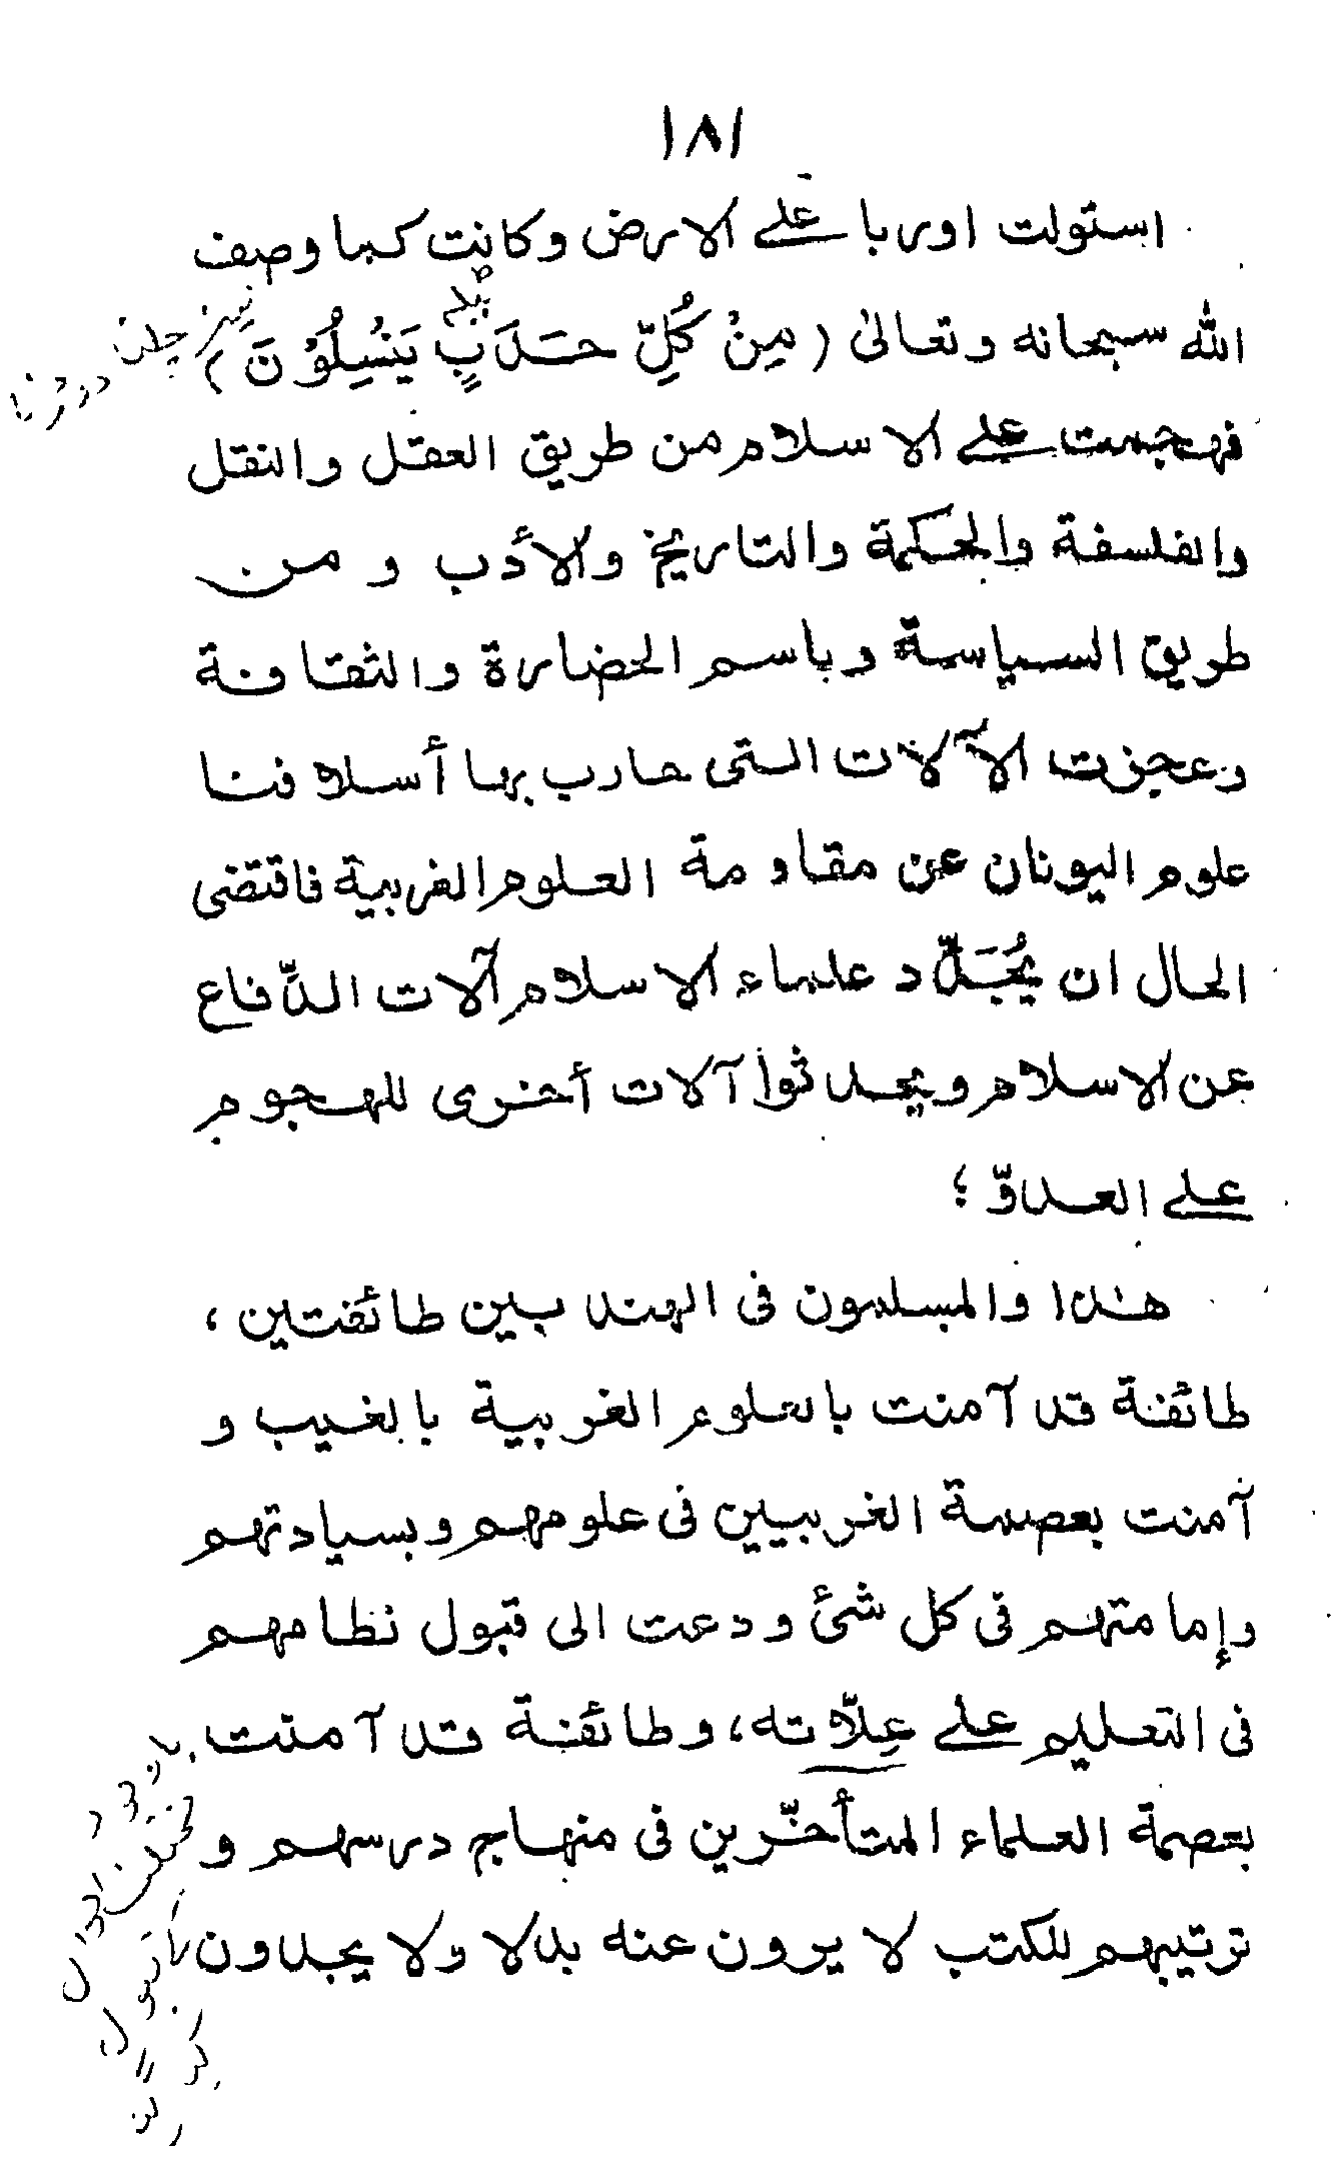 ١٨١
استولت اوربا على الارض وكانت كما وصف
الله سبحانه وتعالىٰ (مِنْ كُلِّ حَدَبٍ يَنْسِلُوْنَ)
تیز چلن
دوڑنا
فهجمت على الاسلام من طريق العقل والنقل
والفلسفة والحكمة والتاريخ والأدب و من
طريق السياسة وباسم الحضارة والثقافة
وعجزت الآلات التى حارب بها أسلافنا
علوم اليونان عن مقاومة العلوم الغربية فاقتضى
الحال ان يُجَدِّد علماء الاسلام آلات الدِّفاع
عن الاسلام ويحدثوا آلات أخرى للهجوم
على العدوّ ؛
هذا والمسلمون فى الهند بين طائفتين ،
طائفة قد آمنت بالعلوم الغربية بالغيب و
آمنت بعصمة الغربيين فى علومهم وبسيادتهم
وإمامتهم فى كل شئ ودعت الى قبول نظامهم
فى التعليم على عِلّاته، وطائفة قد آمنت
بعصمة العلماء المتأخّرين فى منهاج درسهم و
ترتيبهم للكتب لا يرون عنه بدلا ولا يجدون
باوجود
مختلف احوال
قبول